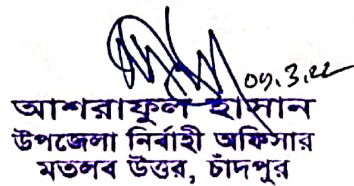 ০৭.৩.২২
আশরাফুল হাসান
উপজেলা নির্বাহী অফিসার
মতলব উত্তর, চাঁদপুর